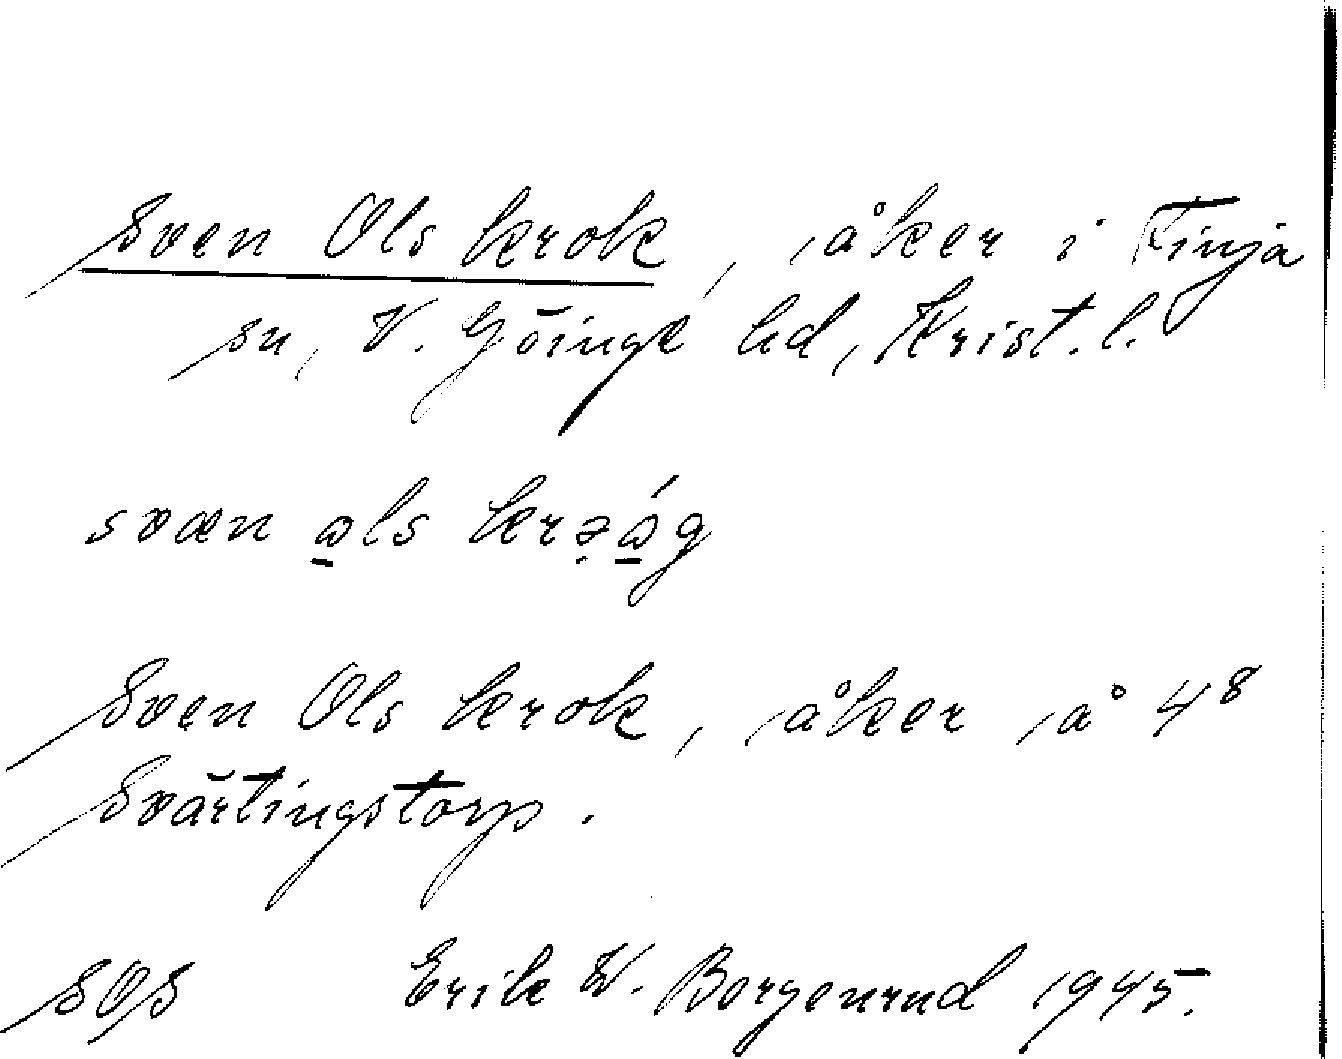 Sven Ols krok, åker i Finja
sn, V. Göinge hd, Krist. l.
svæn
Sven Ols krok, åker å 4⁸
Svärtingstorp.
SOS Erik W. Borgenrud 1945.